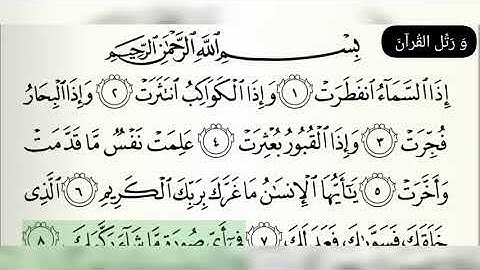 و رتل القرآن
بِسْمِ اللَّهِ الرَّحْمَٰنِ الرَّحِيمِ
إِذَا السَّمَاءُ انفَطَرَتْ ١ وَإِذَا الْكَوَاكِبُ انتَثَرَتْ ٢ وَإِذَا الْبِحَارُ
فُجِّرَتْ ٣ وَإِذَا الْقُبُورُ بُعْثِرَتْ ٤ عَلِمَتْ نَفْسٌ مَّا قَدَّمَتْ
وَأَخَّرَتْ ٥ يَا أَيُّهَا الْإِنسَانُ مَا غَرَّكَ بِرَبِّكَ الْكَرِيمِ ٦ الَّذِي
خَلَقَكَ فَسَوَّاكَ فَعَدَلَكَ ٧ فِي أَيِّ صُورَةٍ مَّا شَاءَ رَكَّبَكَ ٨